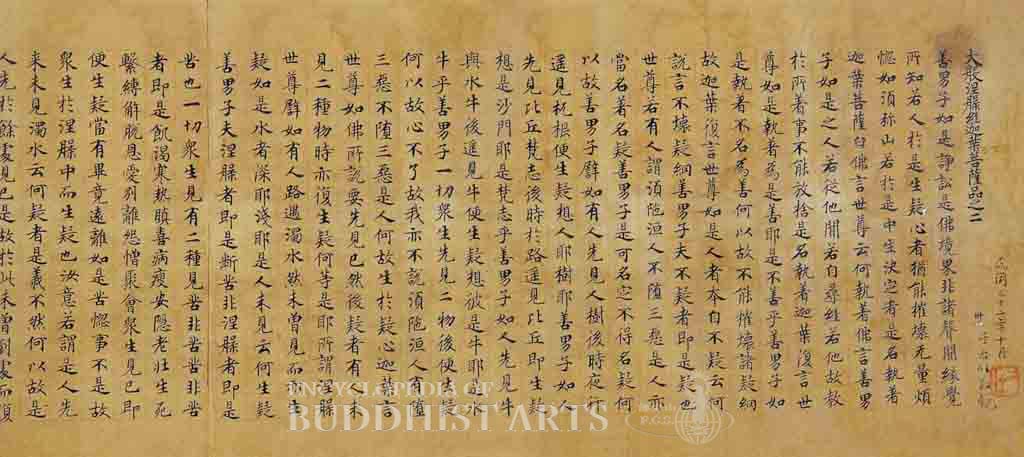 大般涅槃經迦葉菩薩品之二
善男子如是諍訟是佛境界非諸聲聞緣覺
所知若人於是生疑心者猶能摧壞无量煩
惱如須弥山若於是中生決定者是名執著
迦葉菩薩白佛言世尊云何執著佛言善男
子如是之人若從他聞若自尋經若他故教
於所著事不能放捨是名執著迦葉復言世
尊如是執著為是善耶是不善乎善男子如
是執著不名為善何以故不能摧壞諸疑網
故迦葉復言世尊如是人者本自不疑云何
說言不壞疑網善男子夫不疑者即是疑也
世尊若有人謂須陁洹人不墮三惡是人亦
當名著名疑善男子是可名定不得名疑何
以故善男子譬如有人先見人樹後時夜行
遥見杌根便生疑想人耶樹耶善男子如人
先見比丘梵志後時於路遥見比丘即生疑
想是沙門耶是梵志乎善男子如人先見牛
與水牛後遥見牛便生疑想彼是牛耶水
牛乎善男子一切衆生先見二物後便生疑
何以故心不了故我亦不說須陁洹人有墮
三惡不墮三惡是人何故生於疑心迦葉言
世尊如佛所說要先見已然後疑者有人未
見二種物時亦復生疑何等是耶所謂涅槃
世尊譬如有人路遇濁水然未曾見而亦生
疑如是水者深耶淺耶是人未見云何生疑
善男子夫涅槃者即是斷苦非涅槃者即是
苦也一切衆生見有二種見苦非苦苦非苦
者即是飢渴寒熱瞋喜病瘦安隱老壯生死
繫縛解脫恩愛別離怨憎聚會衆生見已即
便生疑當有畢竟遠離如是苦惱事不是故
衆生於涅槃中而生疑也汝意若謂是人先
來未見濁水云何疑者是義不然何以故是
人先於餘處見已是故於此未曾到處而復
ENCYCLOPEDIA OF
BUDDHIST ARTS
F.G.S.